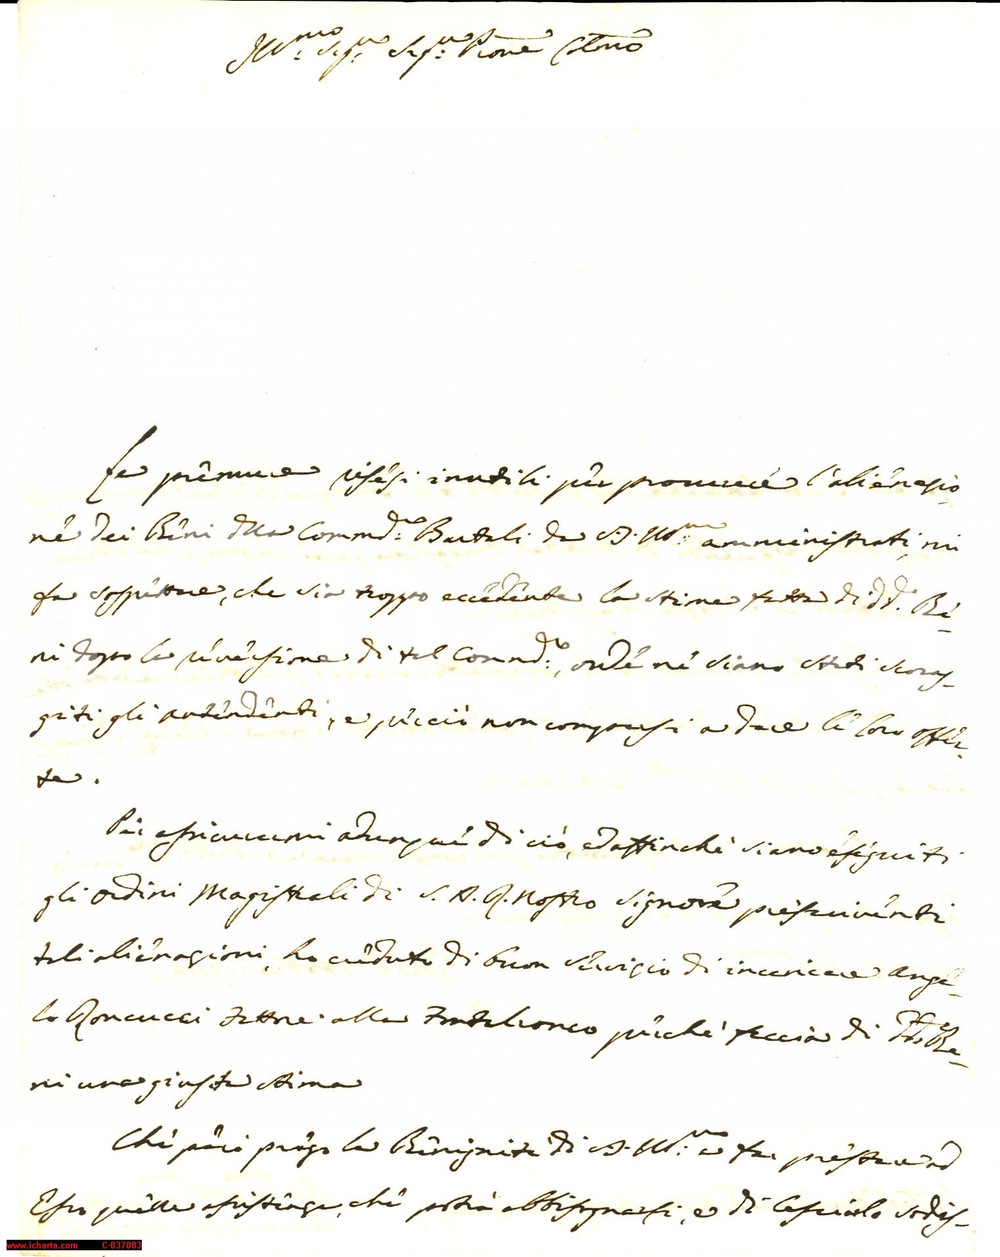 Ill.mo Sig.r Sig.r Prone Colmo
Le premure resesi inutili per promuovere l'alienazio-
ne dei Beni della Commda Bartali da V. S. Ill.ma amministrati, mi
fa sospettare, che sia troppo eccedente la stima fatta di dd. Be-
ni dopo la reversione di tal Commda, onde ne siano stati scorag-
giti gli attendenti, e perciò non comparsi a dare le loro offer-
te.
Per assicurarmi adunque di ciò, ed affinché siano eseguiti
gli Ordini Magistrali di S. A. R. Nostro Signore prescriventi
tali alienazioni, ho creduto di buon servizio di incaricare Ange-
lo Roncucci Fattore alla Fontebranco perché faccia di Be-
ni una giusta stima
Che però prego la Benignità di V. S. Ill.ma a far prestare ad
Esso quelle assistenze, che potrà abbisognarsi, e di lasciarlo sodis-
www.icharta.com C-037083